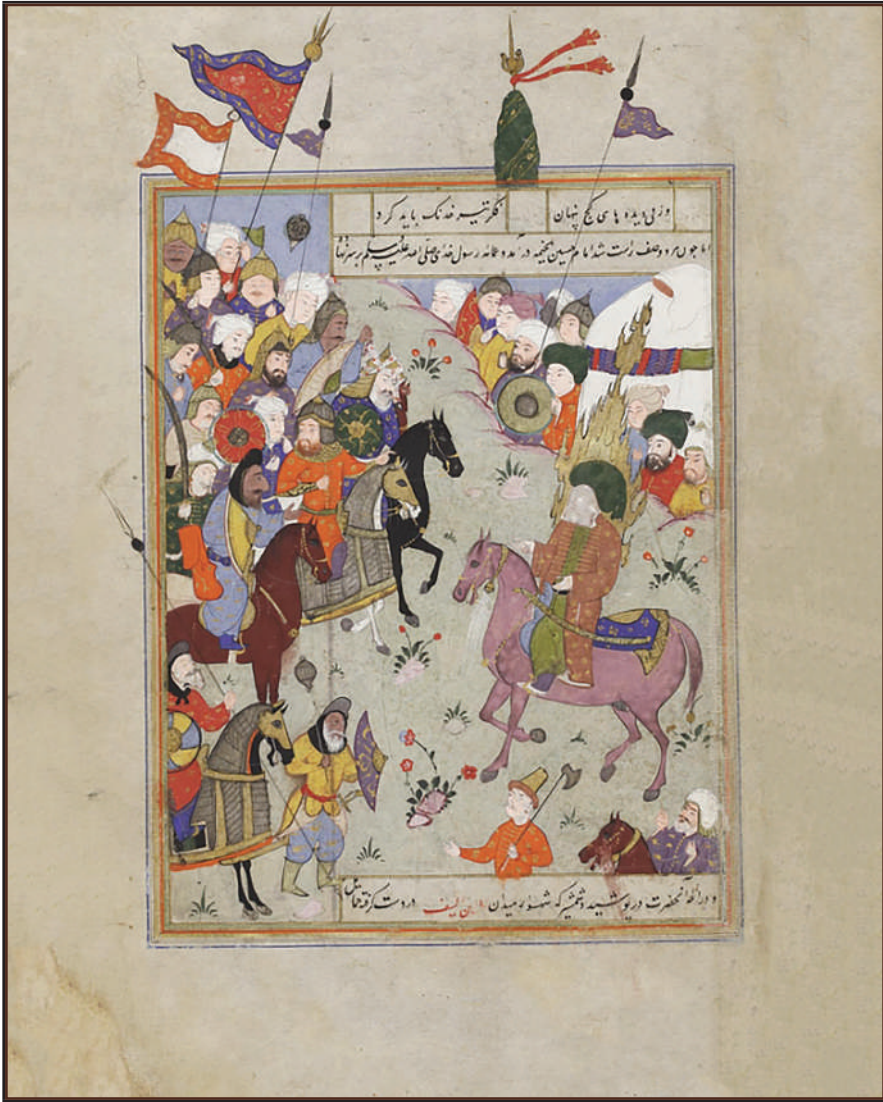 وز پی دیده های کج پنهان فکر تیر خدنگ باید کرد
اما چون هر دو صف راست شد امام حسین بخیمه در آمد و عمامه رسول خدای صلی الله علیه و سلم بر سر نهاد
و دراعه آنحضرت در پوشید و شمشیر که شهسوار میدان در دست گرفته حمایل